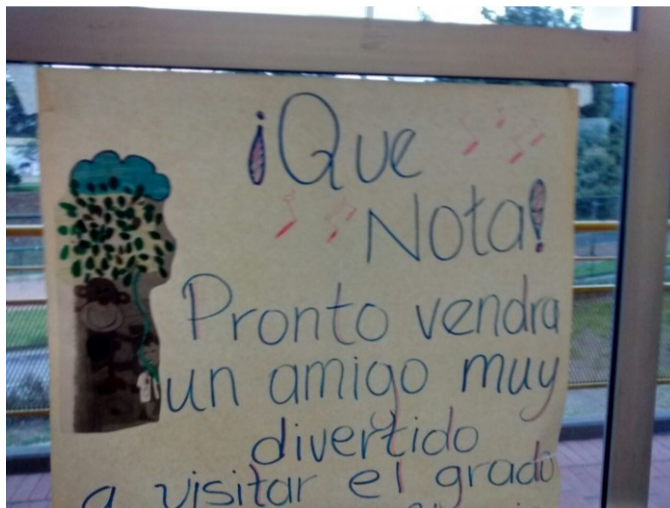 ¡Que
Nota!
Pronto vendra
un amigo muy
divertido
a visitar el grado